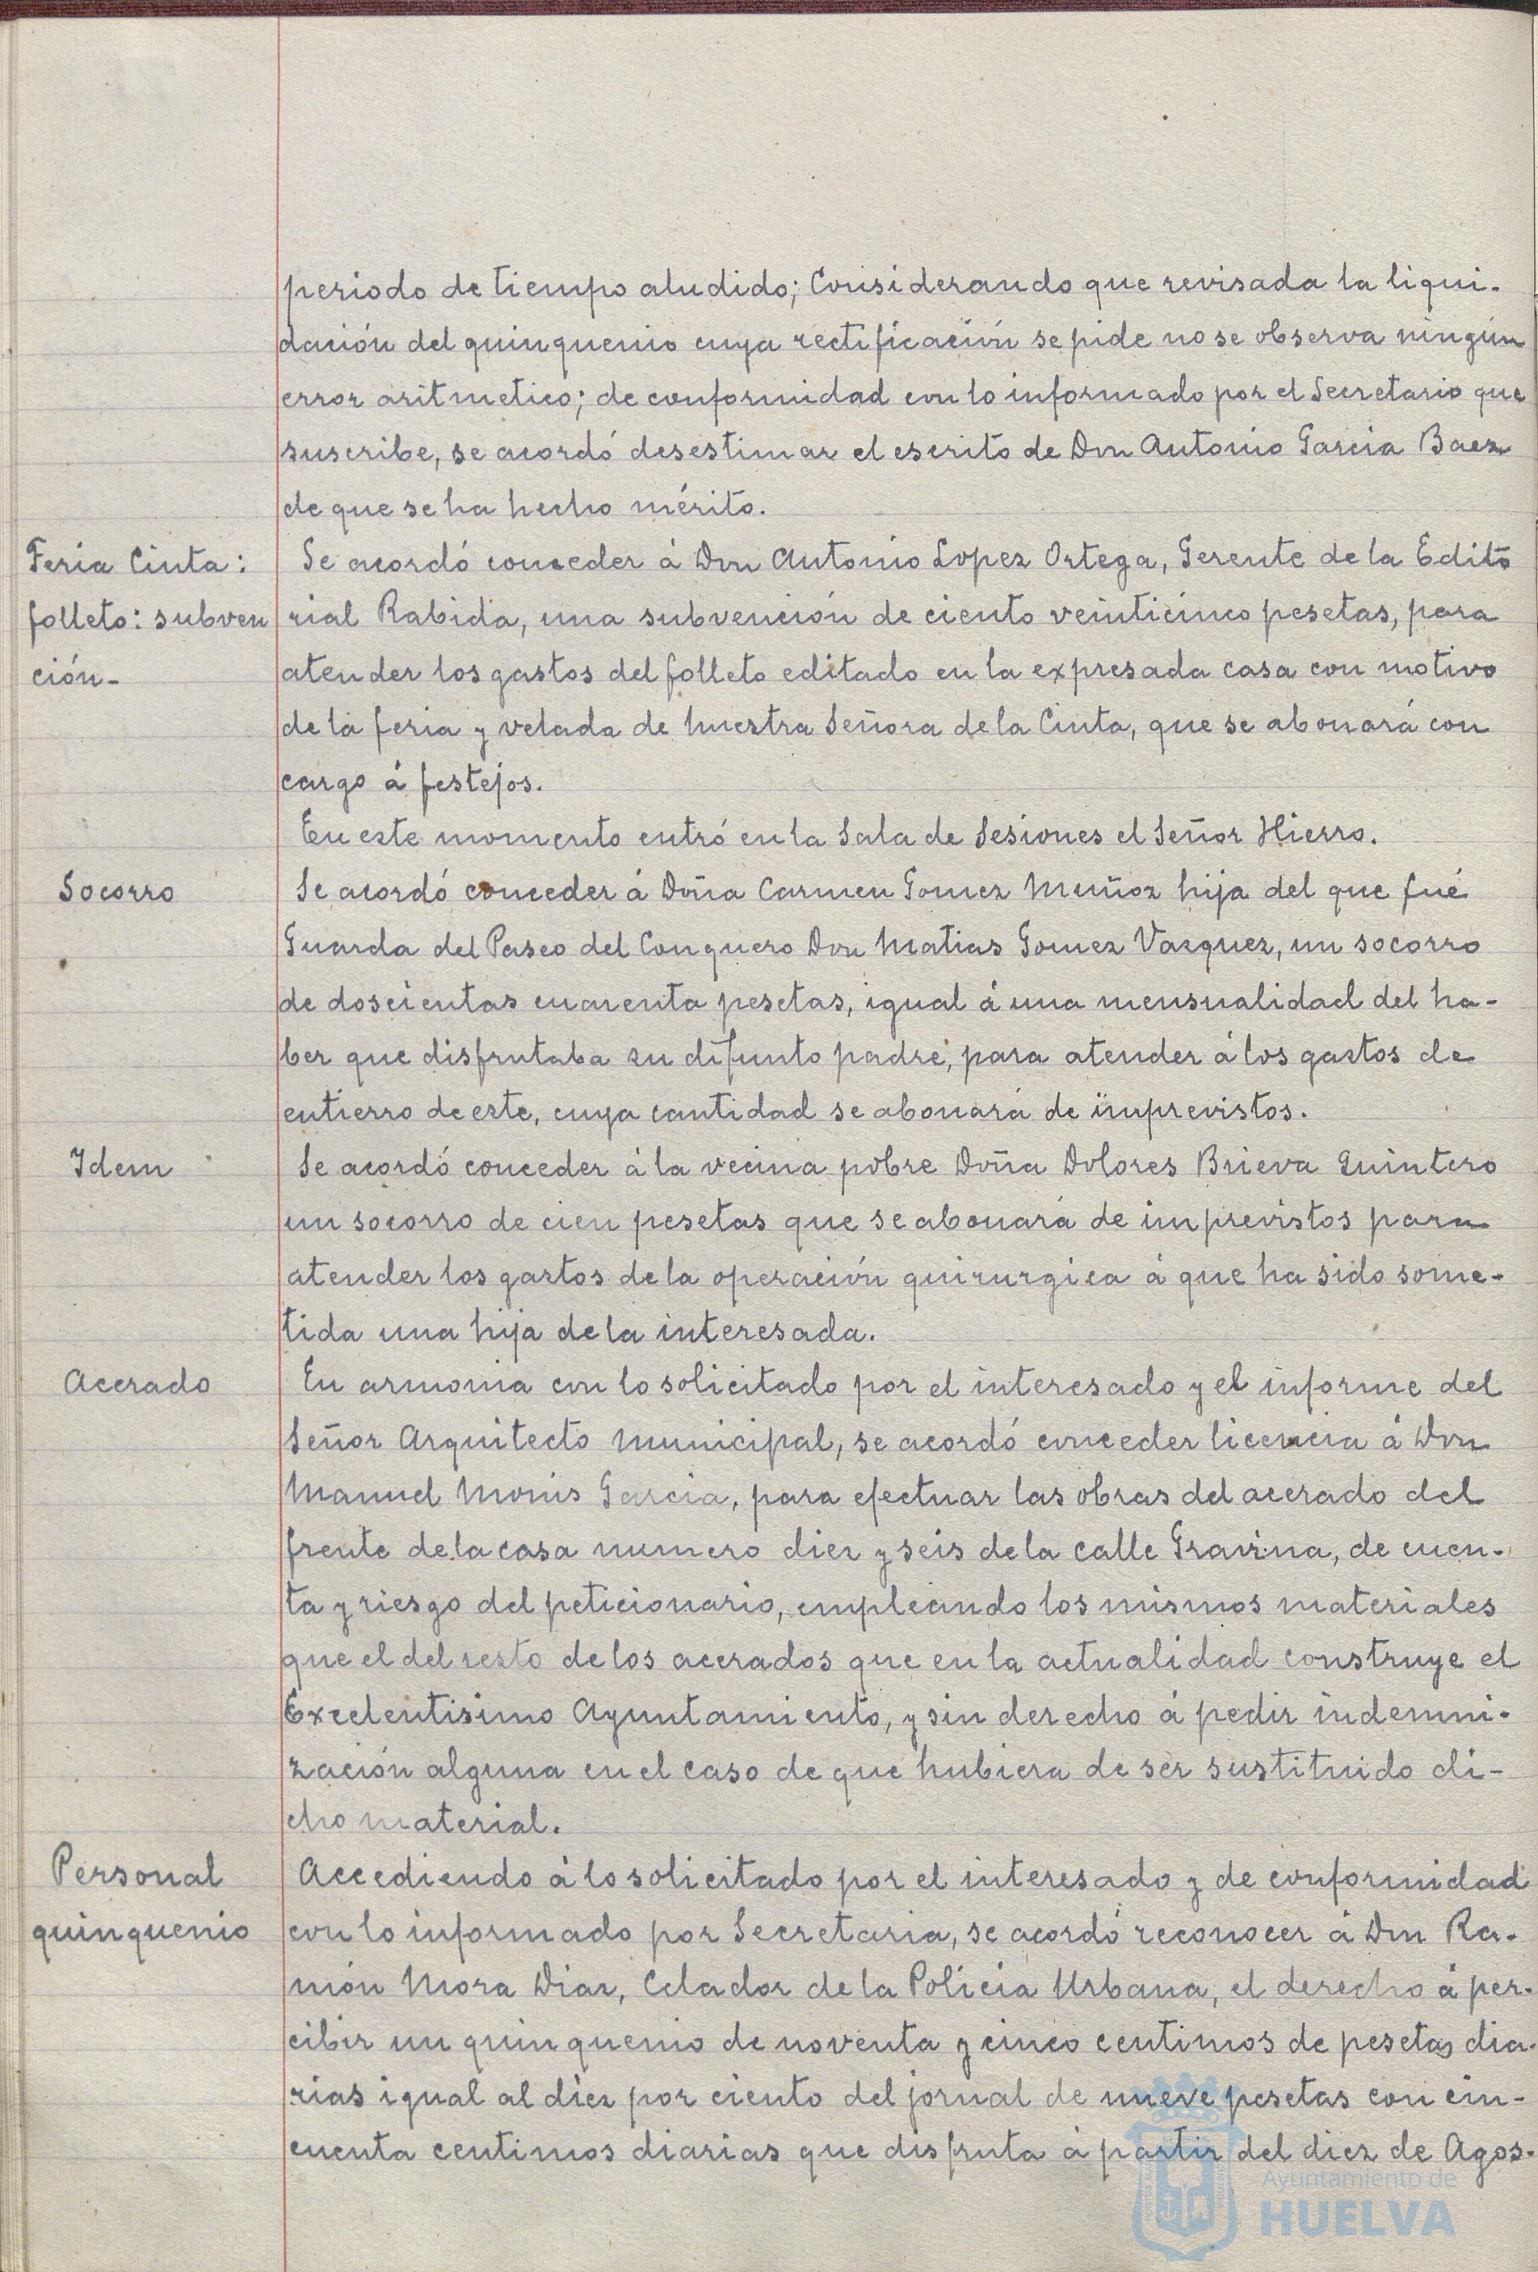 periodo de tiempo aludido; Considerando que revisada la liqui-
dación del quinquenio cuya rectificación se pide no se observa ningún
error aritmetico; de conformidad con lo informado por el Secretario que
suscribe, se acordó desestimar el escrito de Don Antonio Garcia Baez
de que se ha hecho mérito.
Feria Cinta:
folleto: subven
ción-
Se acordó conceder á Don Antonio Lopez Ortega, Gerente de la Edito
rial Rabida, una subvención de ciento veinticinco pesetas, para
atender los gastos del folleto editado en la expresada casa con motivo
de la feria y velada de Nuestra Señora de la Cinta, que se abonará con
cargo á festejos.
En este momento entró en la Sala de Sesiones el Señor Hierro.
Socorro
Se acordó conceder á Doña Carmen Gomez Muñoz hija del que fué
Guarda del Paseo del Conquero Don Matias Gomez Vazquez, un socorro
de doscientas cuarenta pesetas, igual á una mensualidad del ha-
ber que disfrutaba su difunto padre, para atender á los gastos de
entierro de este, cuya cantidad se abonará de imprevistos.
Idem
Se acordó conceder á la vecina pobre Doña Dolores Brieva Quintero
un socorro de cien pesetas que se abonará de imprevistos para
atender los gastos de la operación quirurgica á que ha sido some-
tida una hija de la interesada.
Acerado
En armonia con lo solicitado por el interesado y el informe del
Señor Arquitecto Municipal, se acordó conceder licencia á Don
Manuel Monis Garcia, para efectuar las obras del acerado del
frente de la casa numero diez y seis de la calle Gravina, de cuen-
ta y riesgo del peticionario, empleando los mismos materiales
que el del resto de los acerados que en la actualidad construye el
Excelentisimo Ayuntamiento, y sin derecho á pedir indemni-
zación alguna en el caso de que hubiera de ser sustituido di-
cho material.
Personal
quinquenio
Accediendo á lo solicitado por el interesado y de conformidad
con lo informado por Secretaria, se acordó reconocer á Don Ra-
món Mora Diaz, Celador de la Policia Urbana, el derecho á per-
cibir un quinquenio de noventa y cinco centimos de pesetas dia-
rias igual al diez por ciento del jornal de nueve pesetas con cin-
cuenta centimos diarias que disfruta á partir del diez de Agos-
Ayuntamiento de
HUELVA